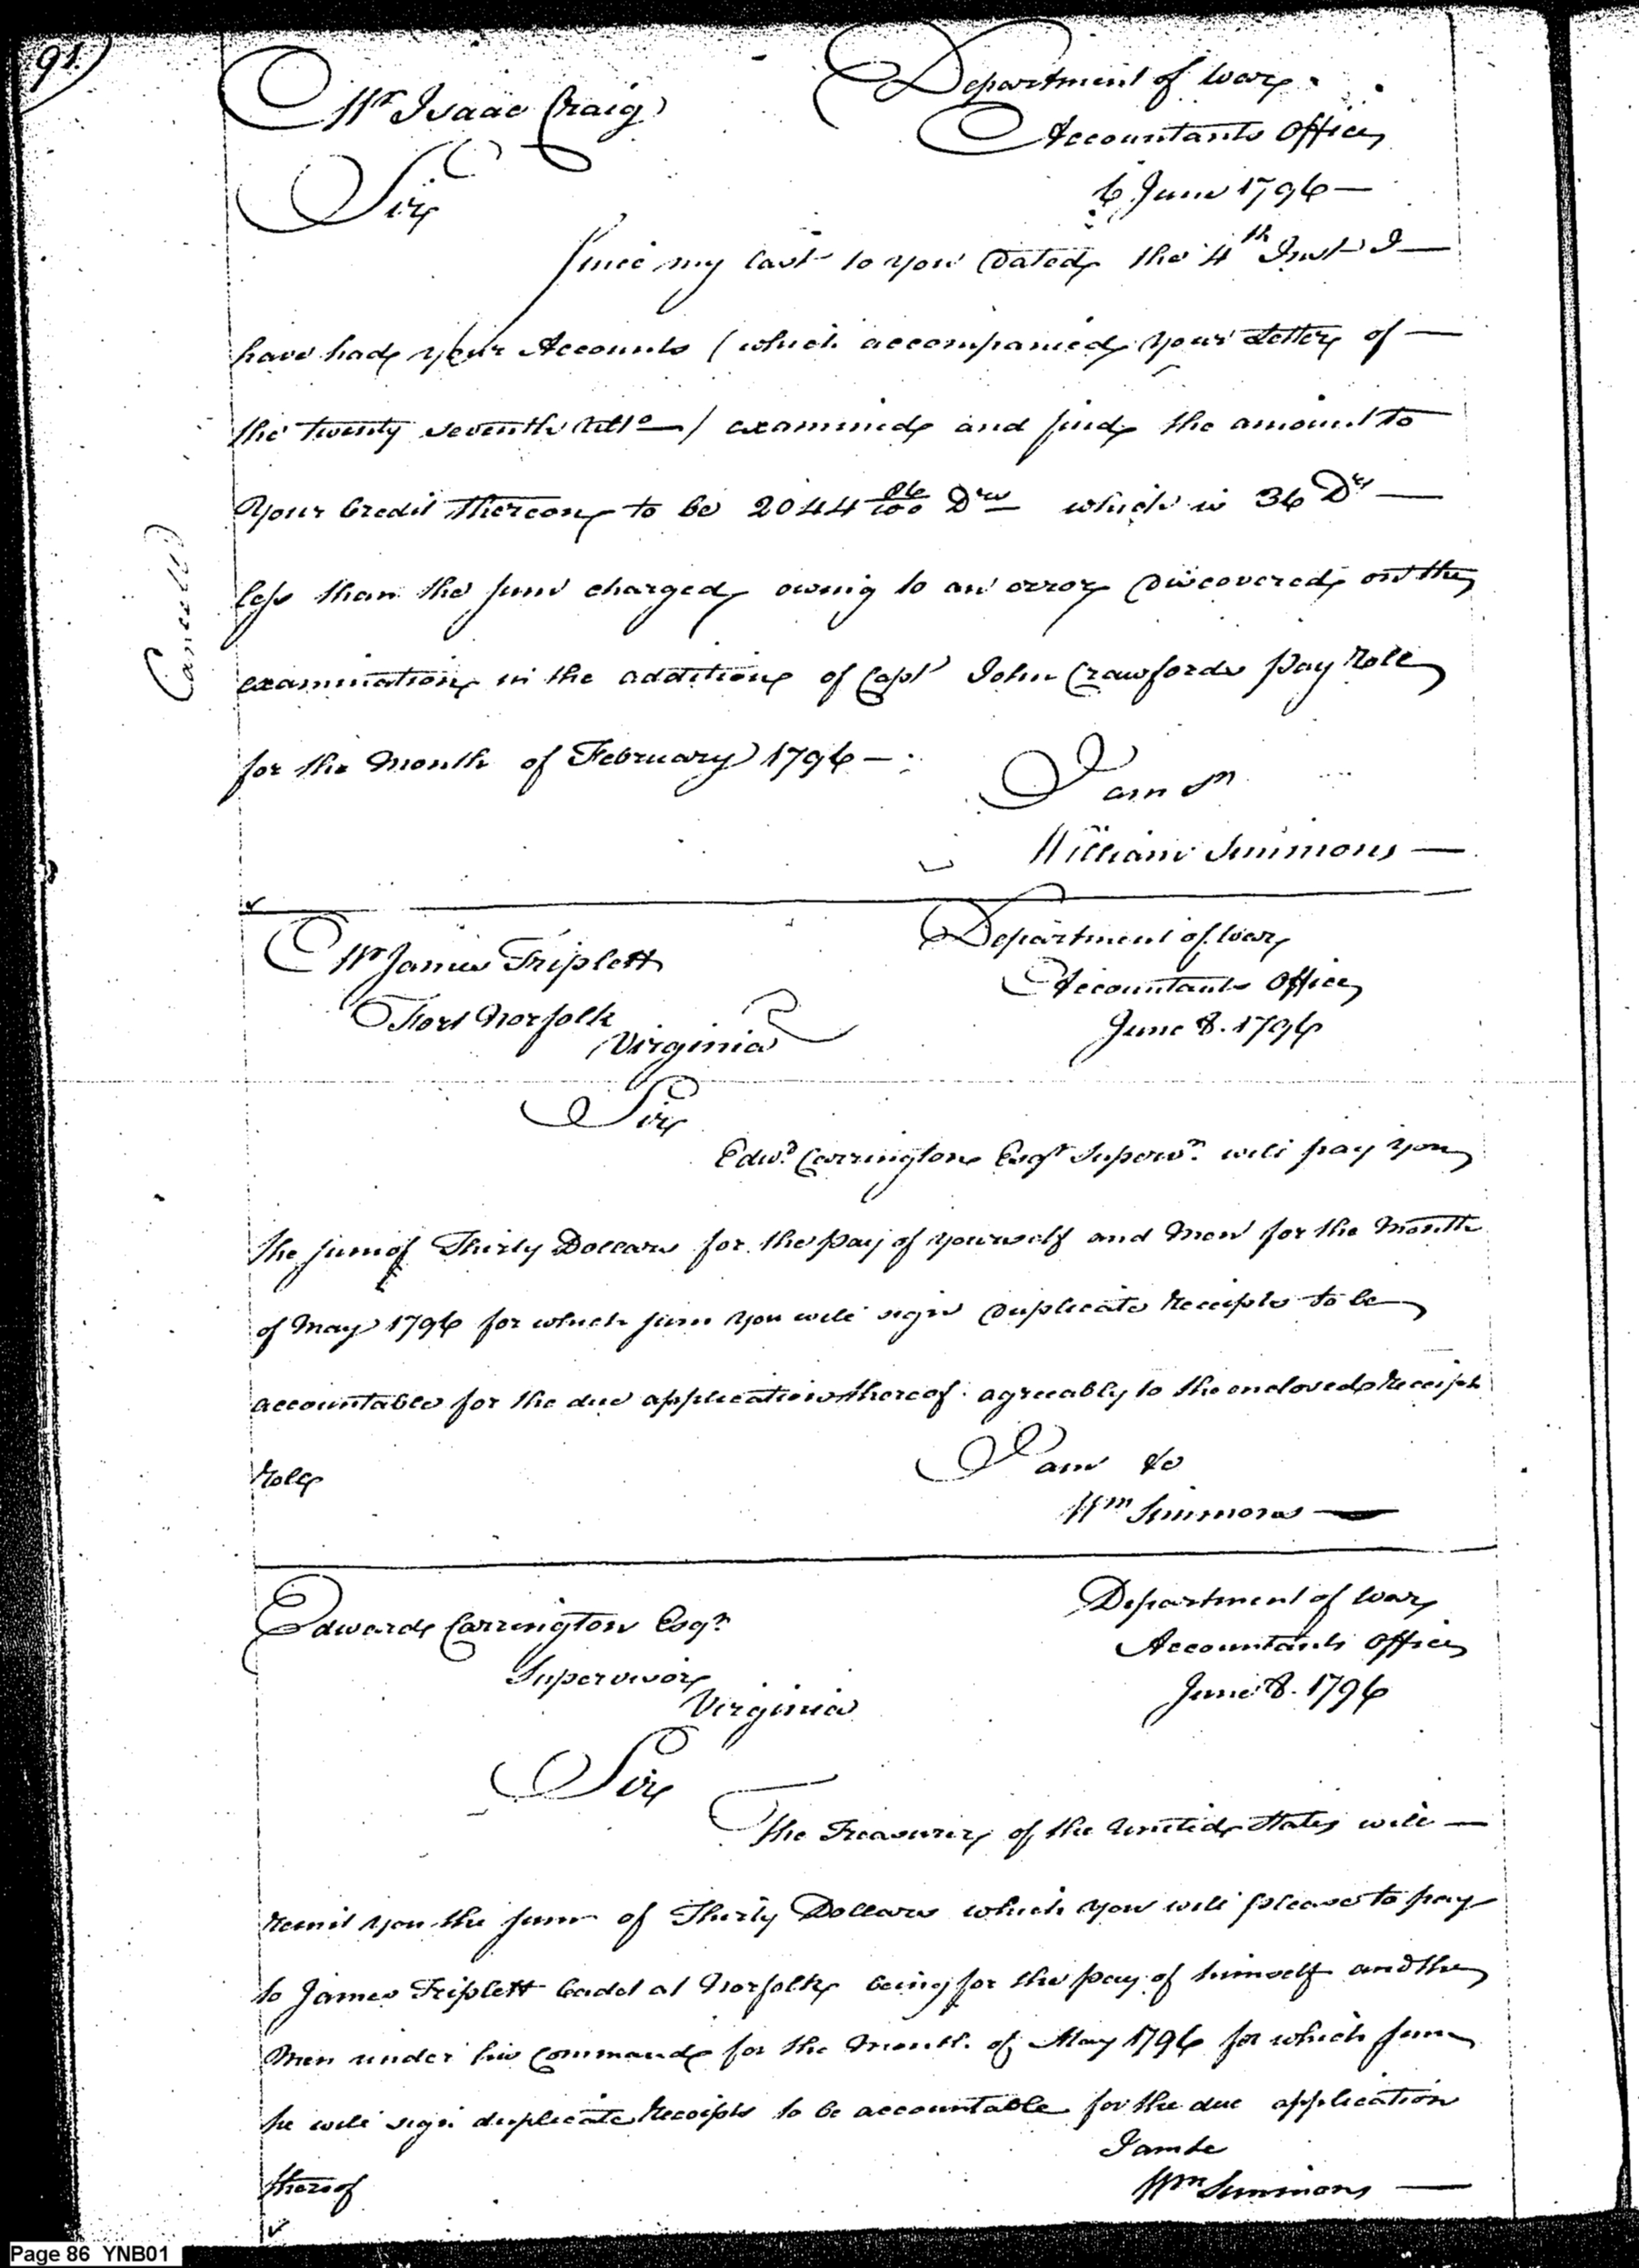 91.
Mr Isaac Craig
Department of War
Accountants Office
6 June 1796 —
Sir
Since my last to you dated the 4th Inst I —
have had your Accounts (which accompanied your Letter of —
the twenty seventh Ulto —) examined and find the amount to
Your Credit thereon to be 2044 86/100 Drs which is 36 Drs —
less than the sum charged, owing to an error discovered on the
examination in the addition of Capt John Crawfords pay Role
for the Month of February 1796 — .
Cancelled
I am &c
William Simmons —
Mr James Triplett
Fort Norfolk
Virginia
Department of War
Accountants Office
June 8. 1796
Sir
Edwd Carrington Esqr Superv. will pay you
the sum of Thirty Dollars for the pay of yourself and Men for the Month
of May 1796 for which sum you will sign duplicate Receipts to be
accountable for the due application thereof agreeably to the enclosed Receipt
Role
I am &c
Wm Simmons —
Edward Carrington Esqr
Supervisor
Virginia
Department of War
Accountants Office
June 8. 1796
Sir
The Treasurer of the United States will —
Remit you the sum of Thirty Dollars which you will please to pay
to James Triplett Cadet at Norfolk being for the pay of himself and the
Men under his command for the Month of May 1796 for which sum
he will sign duplicate Receipts to be accountable for the due application
thereof
I am &c
Wm Simmons —
Page 86 YNB01